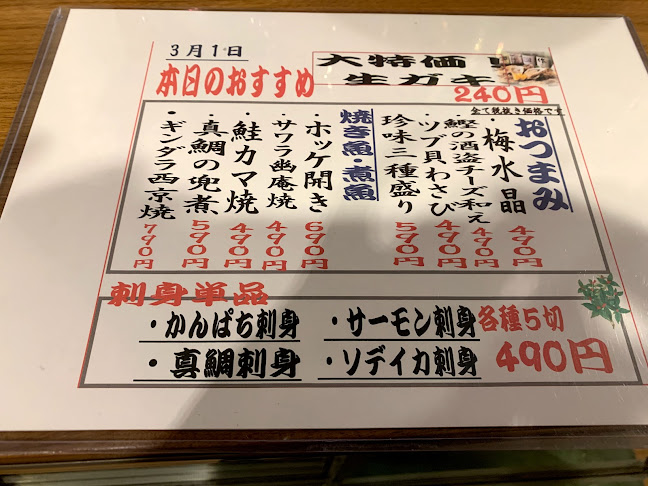 3月1日
本日のおすすめ
大特価!
生ガキ
240円
全て税抜き価格です
おつまみ
・梅水晶 490円
鰹の酒盗チーズ和え 490円
・ツブ貝わさび 490円
珍味三種盛り 590円
焼き魚・煮魚
・ホッケ開き 690円
・サワラ幽庵焼 490円
・鮭カマ焼 490円
・真鯛の兜煮 590円
・ギンダラ西京焼 790円
刺身単品
・かんぱち刺身
・サーモン刺身
各種5切
・真鯛刺身
・ソデイカ刺身
490円